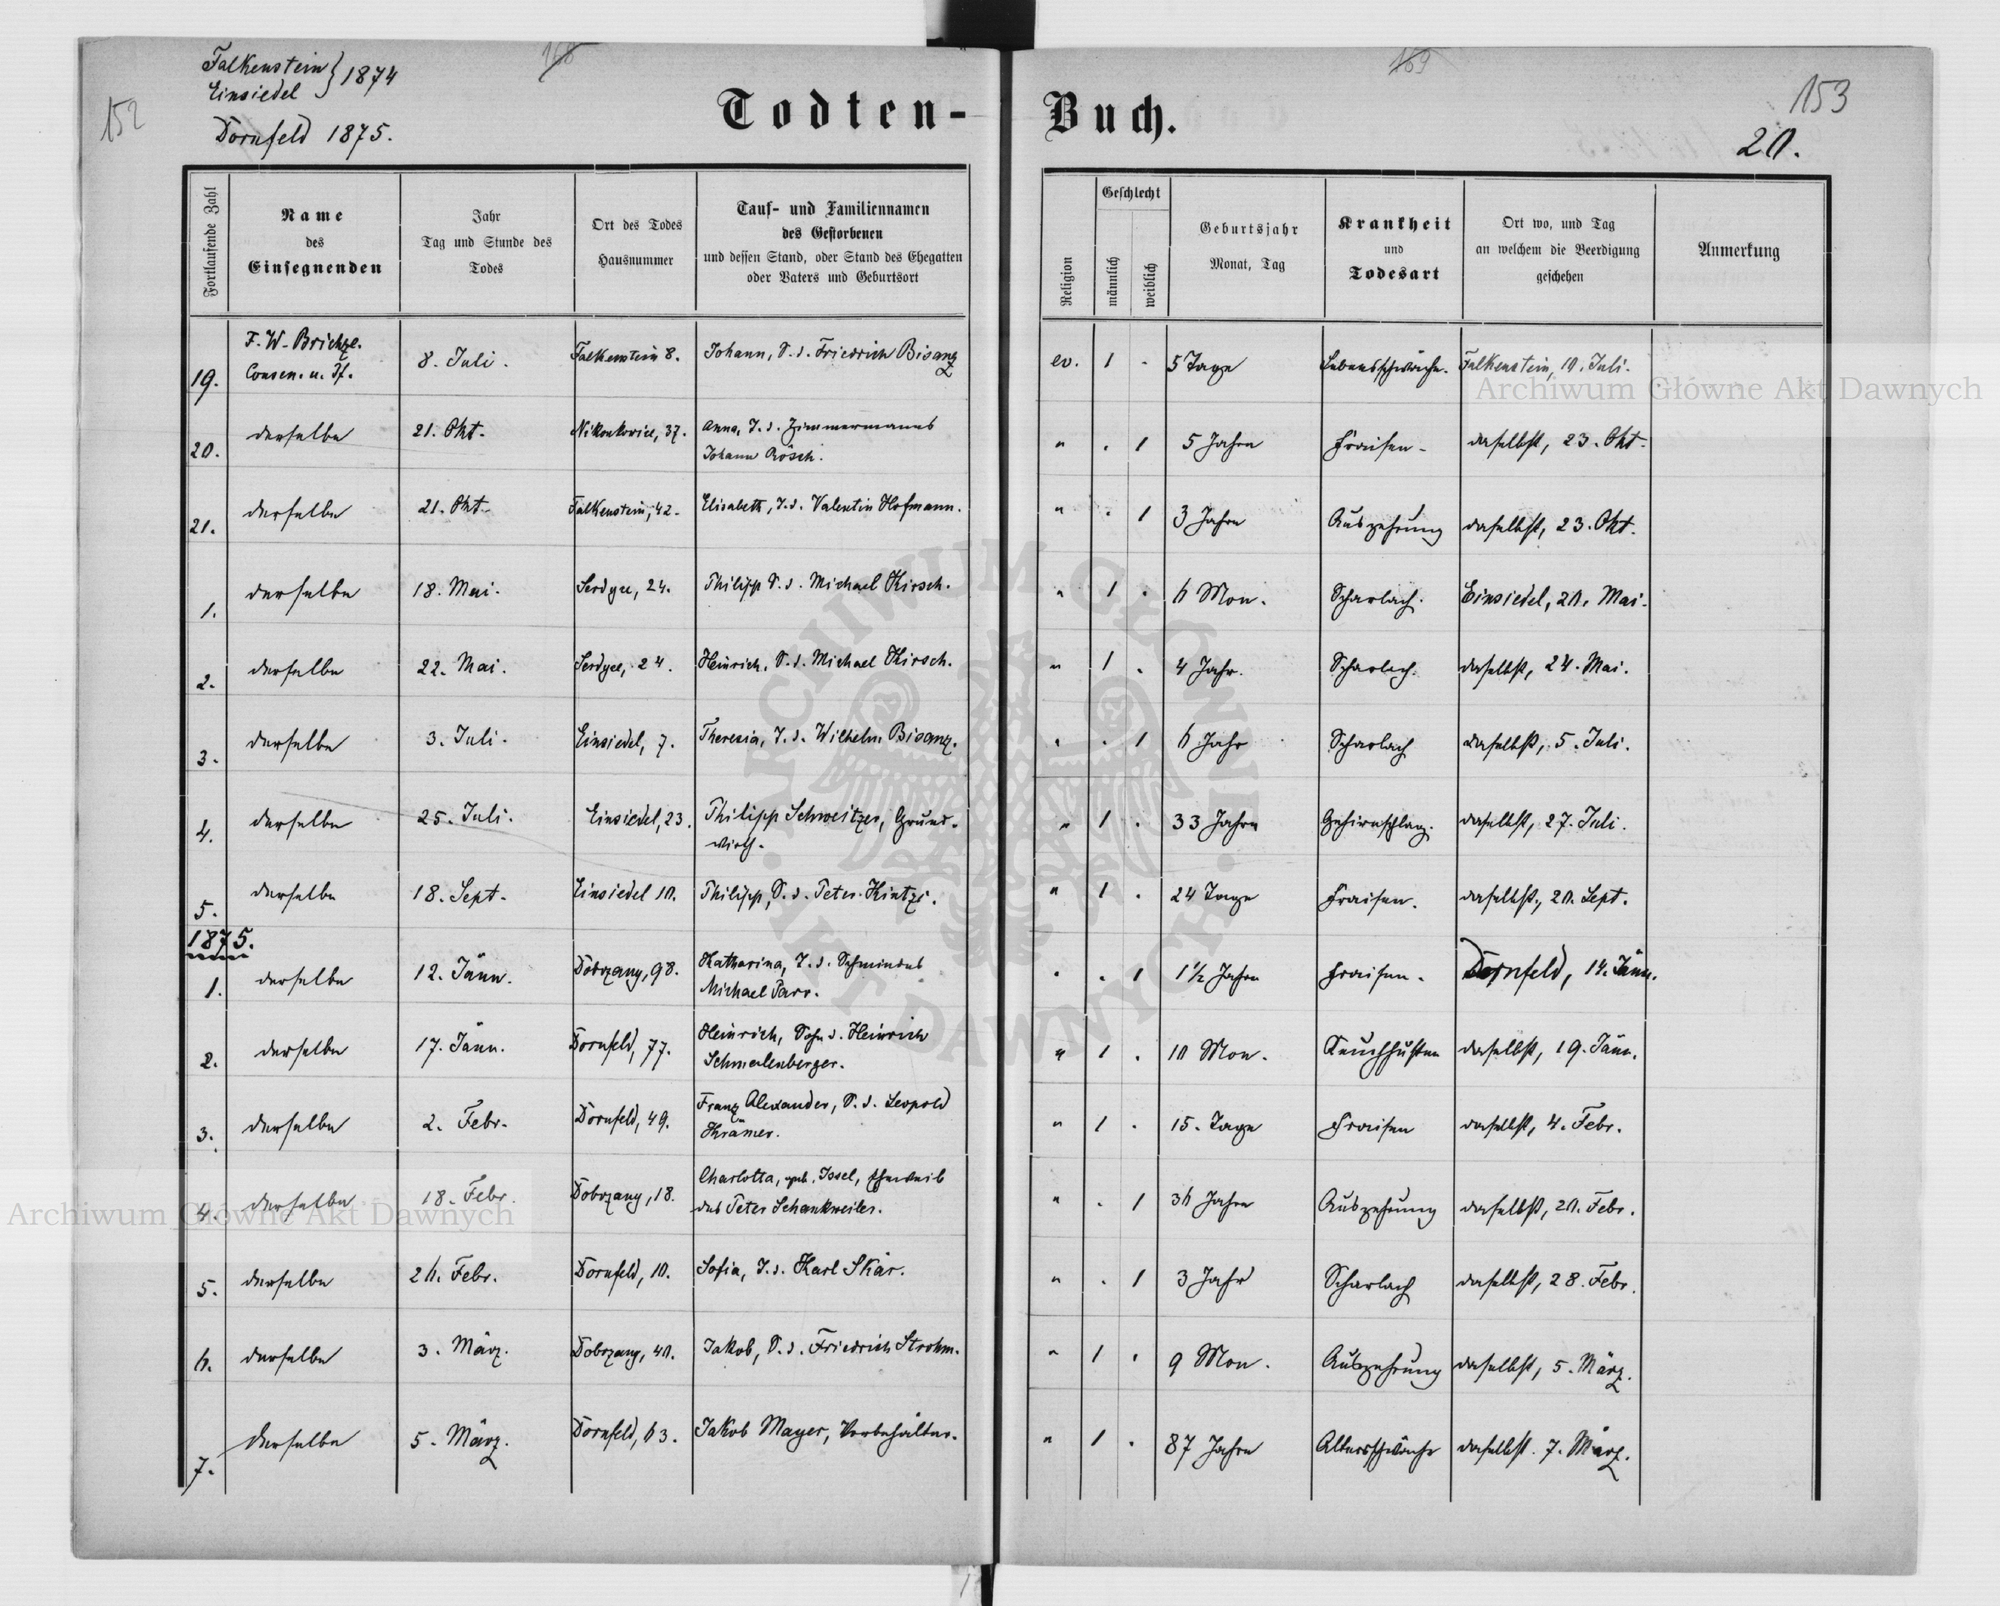 Falkenstein } 1874
Einsiedel
Dornfeld 1875.
152
168
169
153
20.
Todten-Buch.
Fortlaufende Zahl
Name
des
Einsegnenden
Jahr
Tag und Stunde des
Todes
Ort des Todes
Hausnummer
Tauf- und Familiennamen
des Gestorbenen
und dessen Stand, oder Stand des Ehegatten
oder Vaters und Geburtsort
Religion
Geschlecht
männlich
weiblich
Geburtsjahr
Monat, Tag
Krankheit
und
Todesart
Ort wo, und Tag
an welchem die Beerdigung
geschehen
Anmerkung
19. F. W. Consen. u. Pf. 8. Juli. Falkenstein 8. Johann, S. d. Friedrich Bisanz ev. 1 . 5 Tage Lebensschwäche. Falkenstein, 10. Juli.
20. derselbe 21. Okt. Nikonkovice, 37. Anna, T. d. Zimmermanns
Johann Rösch. " . 1 5 Jahre Fraisen - daselbst, 23. Okt.
21. derselbe 21. Okt. Falkenstein, 42. Elisabeth, T. d. Valentin Hofmann. " . 1 3 Jahre Auszehrung daselbst, 23. Okt.
1. derselbe 18. Mai. Serdyce, 24. Philipp S. d. Michael Kirsch. " 1 . 6 Mon. Scharlach. Einsiedel, 20. Mai.
2. derselbe 22. Mai. Serdyce, 24. Heinrich, S. d. Michael Kirsch. " 1 . 4 Jahr. Scharlach. daselbst, 24. Mai.
3. derselbe 3. Juli. Einsiedel, 7. Theresia, T. d. Wilhelm Bisanz. " . 1 6 Jahr Scharlach daselbst, 5. Juli.
4. derselbe 25. Juli. Einsiedel, 23. Philipp Schweitzer, Grund-
wirth. " 1 . 33 Jahre Gehirnschlag. daselbst, 27. Juli.
5. derselbe 18. Sept. Einsiedel 10. Philipp, S. d. Peter Kintzi. " 1 . 24 Tage Fraisen. daselbst, 20. Sept.
1875.
1. derselbe 12. Jänn. Dobrzany, 98. Katharina, T. d. Schmiedes
Michael Parr. " . 1 1½ Jahre Fraisen. Dornfeld, 14. Jänn.
2. derselbe 17. Jänn. Dornfeld, 77. Heinrich, Sohn d. Heinrich
Schmerlenberger. " 1 . 10 Mon. Keuchhusten daselbst, 19. Jänn.
3. derselbe 2. Febr. Dornfeld, 49. Franz Alexander, S. d. Leopold
Krämer. " 1 . 15. Tage Fraisen daselbst, 4. Febr.
4. derselbe 18. Febr. Dobrzany, 18. Charlotta, geb. Issel, Eheweib
des Peter Schankweiler. " . 1 36 Jahre Auszehrung daselbst, 20. Febr.
5. derselbe 26. Febr. Dornfeld, 10. Sofia, T. d. Karl Skár. " . 1 3 Jahr Scharlach daselbst, 28. Febr.
6. derselbe 3. März. Dobrzany, 40. Jakob, S. d. Friedrich Strohm. " 1 . 9 Mon. Auszehrung daselbst, 5. März.
7. derselbe 5. März. Dornfeld, 63. Jakob Mayer, Vorbehälter. " 1 . 87 Jahre Altersschwäche daselbst. 7. März.
Archiwum Główne Akt Dawnych
Archiwum Główne Akt Dawnych
ARCHIWUM GŁÓWNE AKT DAWNYCH